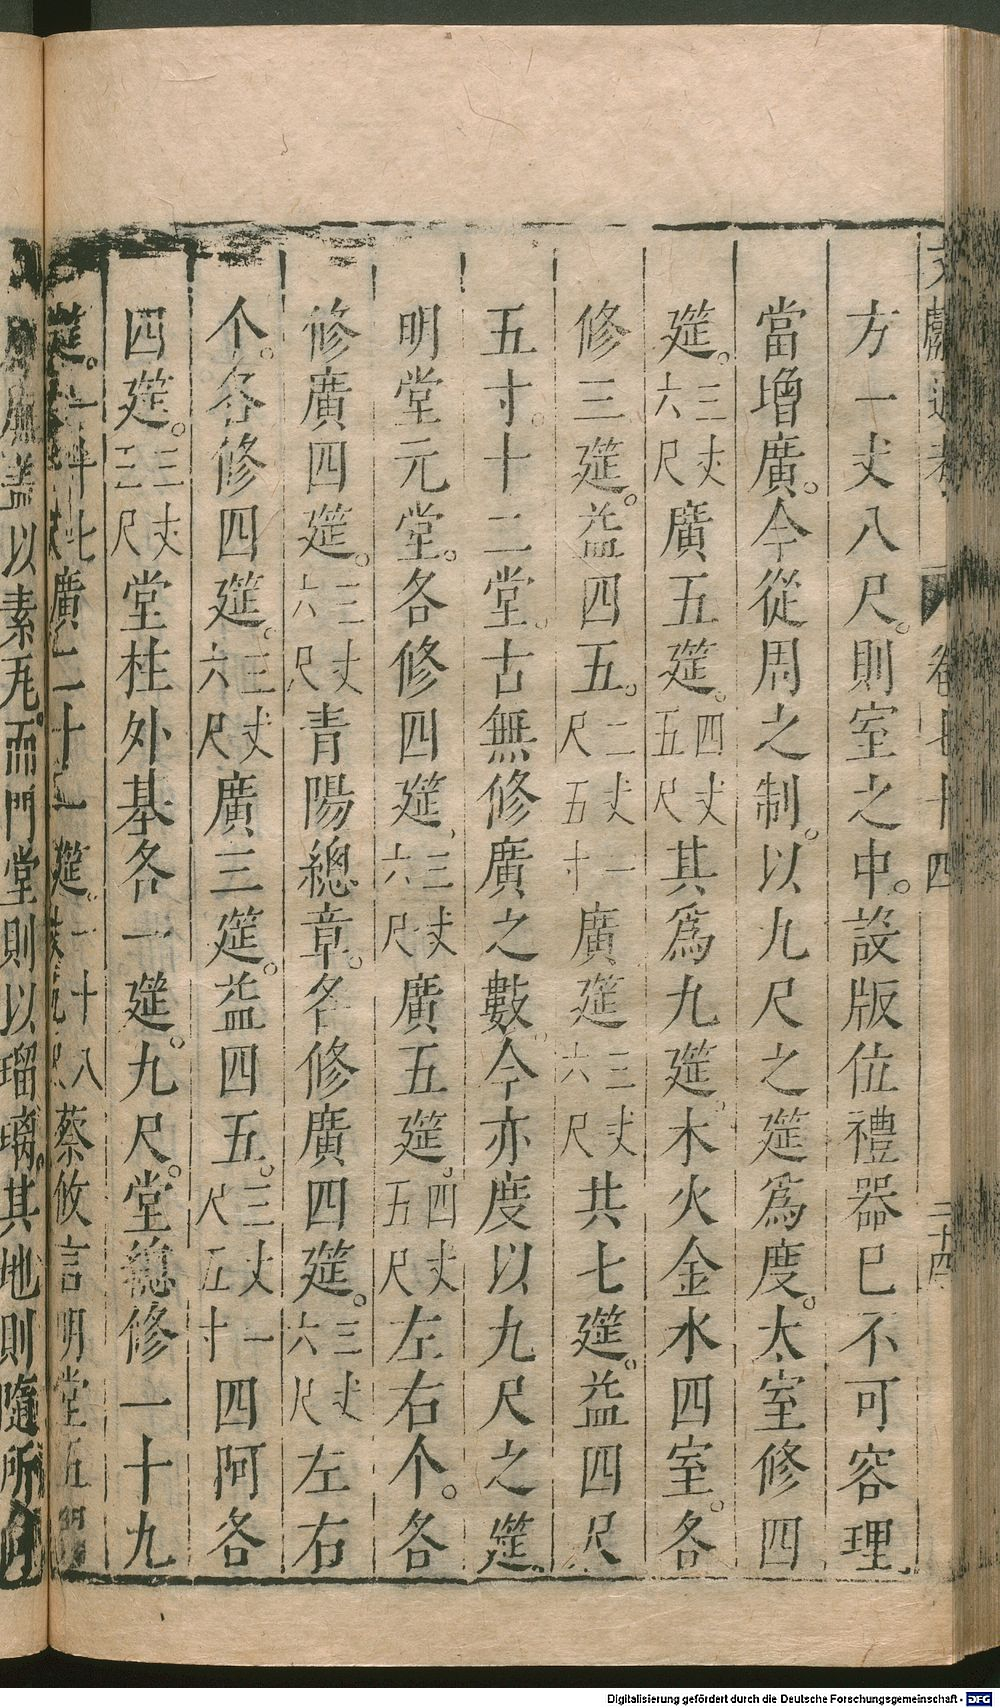 文獻通考 卷七十四 二十四
方一丈八尺。則室之中。設版位禮器已不可容理。
當增廣。今從周之制。以九尺之筵爲度。太室修四
筵。三丈六尺廣五筵。四丈五尺其爲九筵。木火金水四室。各
修三筵。益四五。二丈一尺五寸廣筵三丈六尺共七筵。益四尺
五寸。十二堂。古無修廣之數。今亦度以九尺之筵。
明堂元堂。各修四筵、三丈六尺廣五筵。四丈五尺左右个。各
修廣四筵。三丈六尺青陽總章。各修廣四筵。三丈六尺左右
个。各修四筵。三丈六尺廣三筵。益四五。三丈一尺五寸四阿各
四筵。三丈三尺堂柱外基各一筵。九尺。堂總修一十九
筵。廣二十一筵。一十八蔡攸言明堂五
蓋以素瓦。而門堂則以瑠璃。其地則隨所
Digitalisierung gefördert durch die Deutsche Forschungsgemeinschaft - DFG